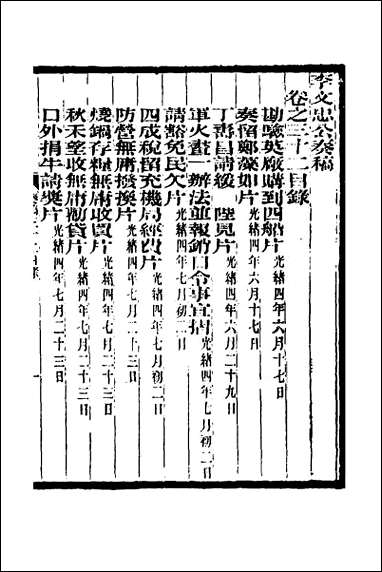 李文忠公奏稿
卷之三十二目錄
勘驗英廠購到四船片光緒四年六月十七日
奏留鄭藻如片光緒四年六月十七日
丁壽昌請綬陸見片光緒四年六月二十九日
軍火畫一辦法並報銷口令事宜摺光緒四年七月初二日
請豁免民欠片光緒四年七月初二日
四成稅留充機局經費片光緒四年七月初二日
防營無庸撥換片光緒四年七月二十三日
燒鍋存糧無庸收買片光緒四年七月二十三日
秋禾望收無庸勸貸片光緒四年七月二十三日
口外捐牛請獎片光緒四年七月二十三日